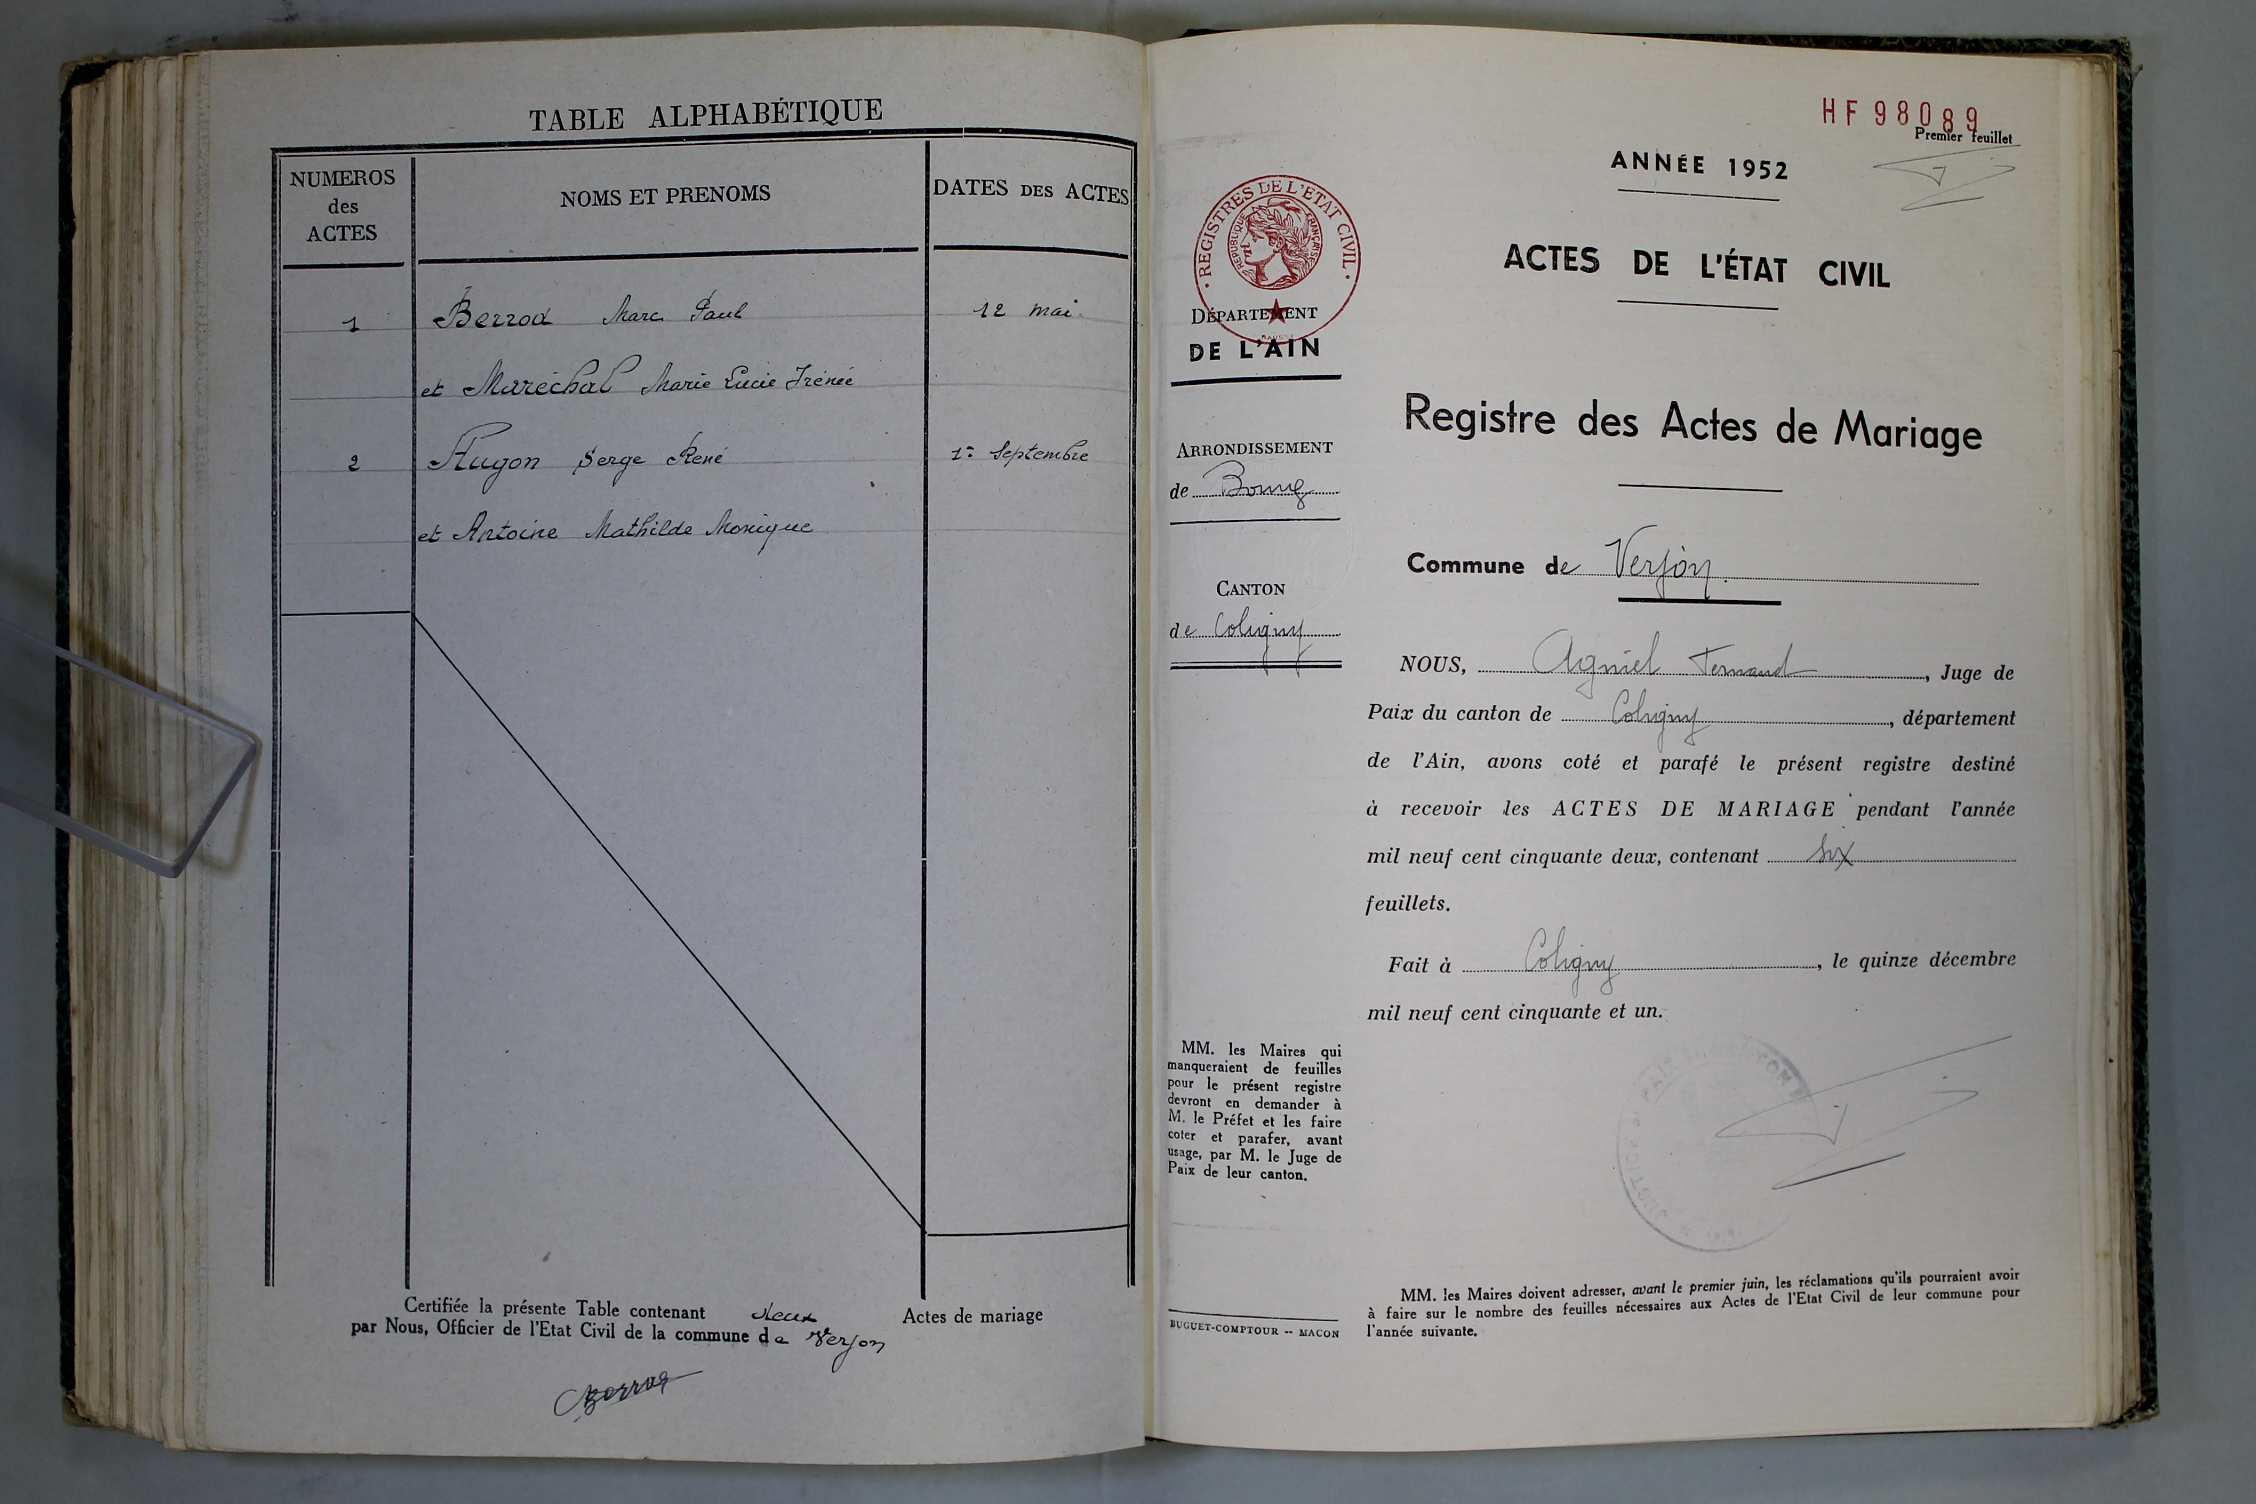 TABLE ALPHABÉTIQUE
NUMEROS
des
ACTES
NOMS ET PRENOMS
DATES DES ACTES
1 Berrod Marc Paul 12 mai
et Maréchal Marie Lucie Irénée
2 Hugon Serge René 1er Septembre
et Antoine Mathilde Monique
Certifiée la présente Table contenant deux Actes de mariage
par Nous, Officier de l'Etat Civil de la commune de Verjon
HF98089
Premier feuillet
ANNÉE 1952
REGISTRES DE L'ETAT CIVIL
REPUBLIQUE FRANÇAISE
DÉPARTEMENT
DE L'AIN
ARRONDISSEMENT
de Bourg
CANTON
de Coligny
MM. les Maires qui
manqueraient de feuilles
pour le présent registre
devront en demander à
M. le Préfet et les faire
coter et parafer, avant
usage, par M. le Juge de
Paix de leur canton.
BUGUET-COMPTOUR -- MACON
ACTES DE L'ÉTAT CIVIL
Registre des Actes de Mariage
Commune de Verjon.
NOUS, Agniel Fernand, Juge de
Paix du canton de Coligny, département
de l'Ain, avons coté et parafé le présent registre destiné
à recevoir les ACTES DE MARIAGE pendant l'année
mil neuf cent cinquante deux, contenant six
feuillets.
Fait à Coligny, le quinze décembre
mil neuf cent cinquante et un.
MM. les Maires doivent adresser, avant le premier juin, les réclamations qu'ils pourraient avoir
à faire sur le nombre des feuilles nécessaires aux Actes de l'Etat Civil de leur commune pour
l'année suivante.